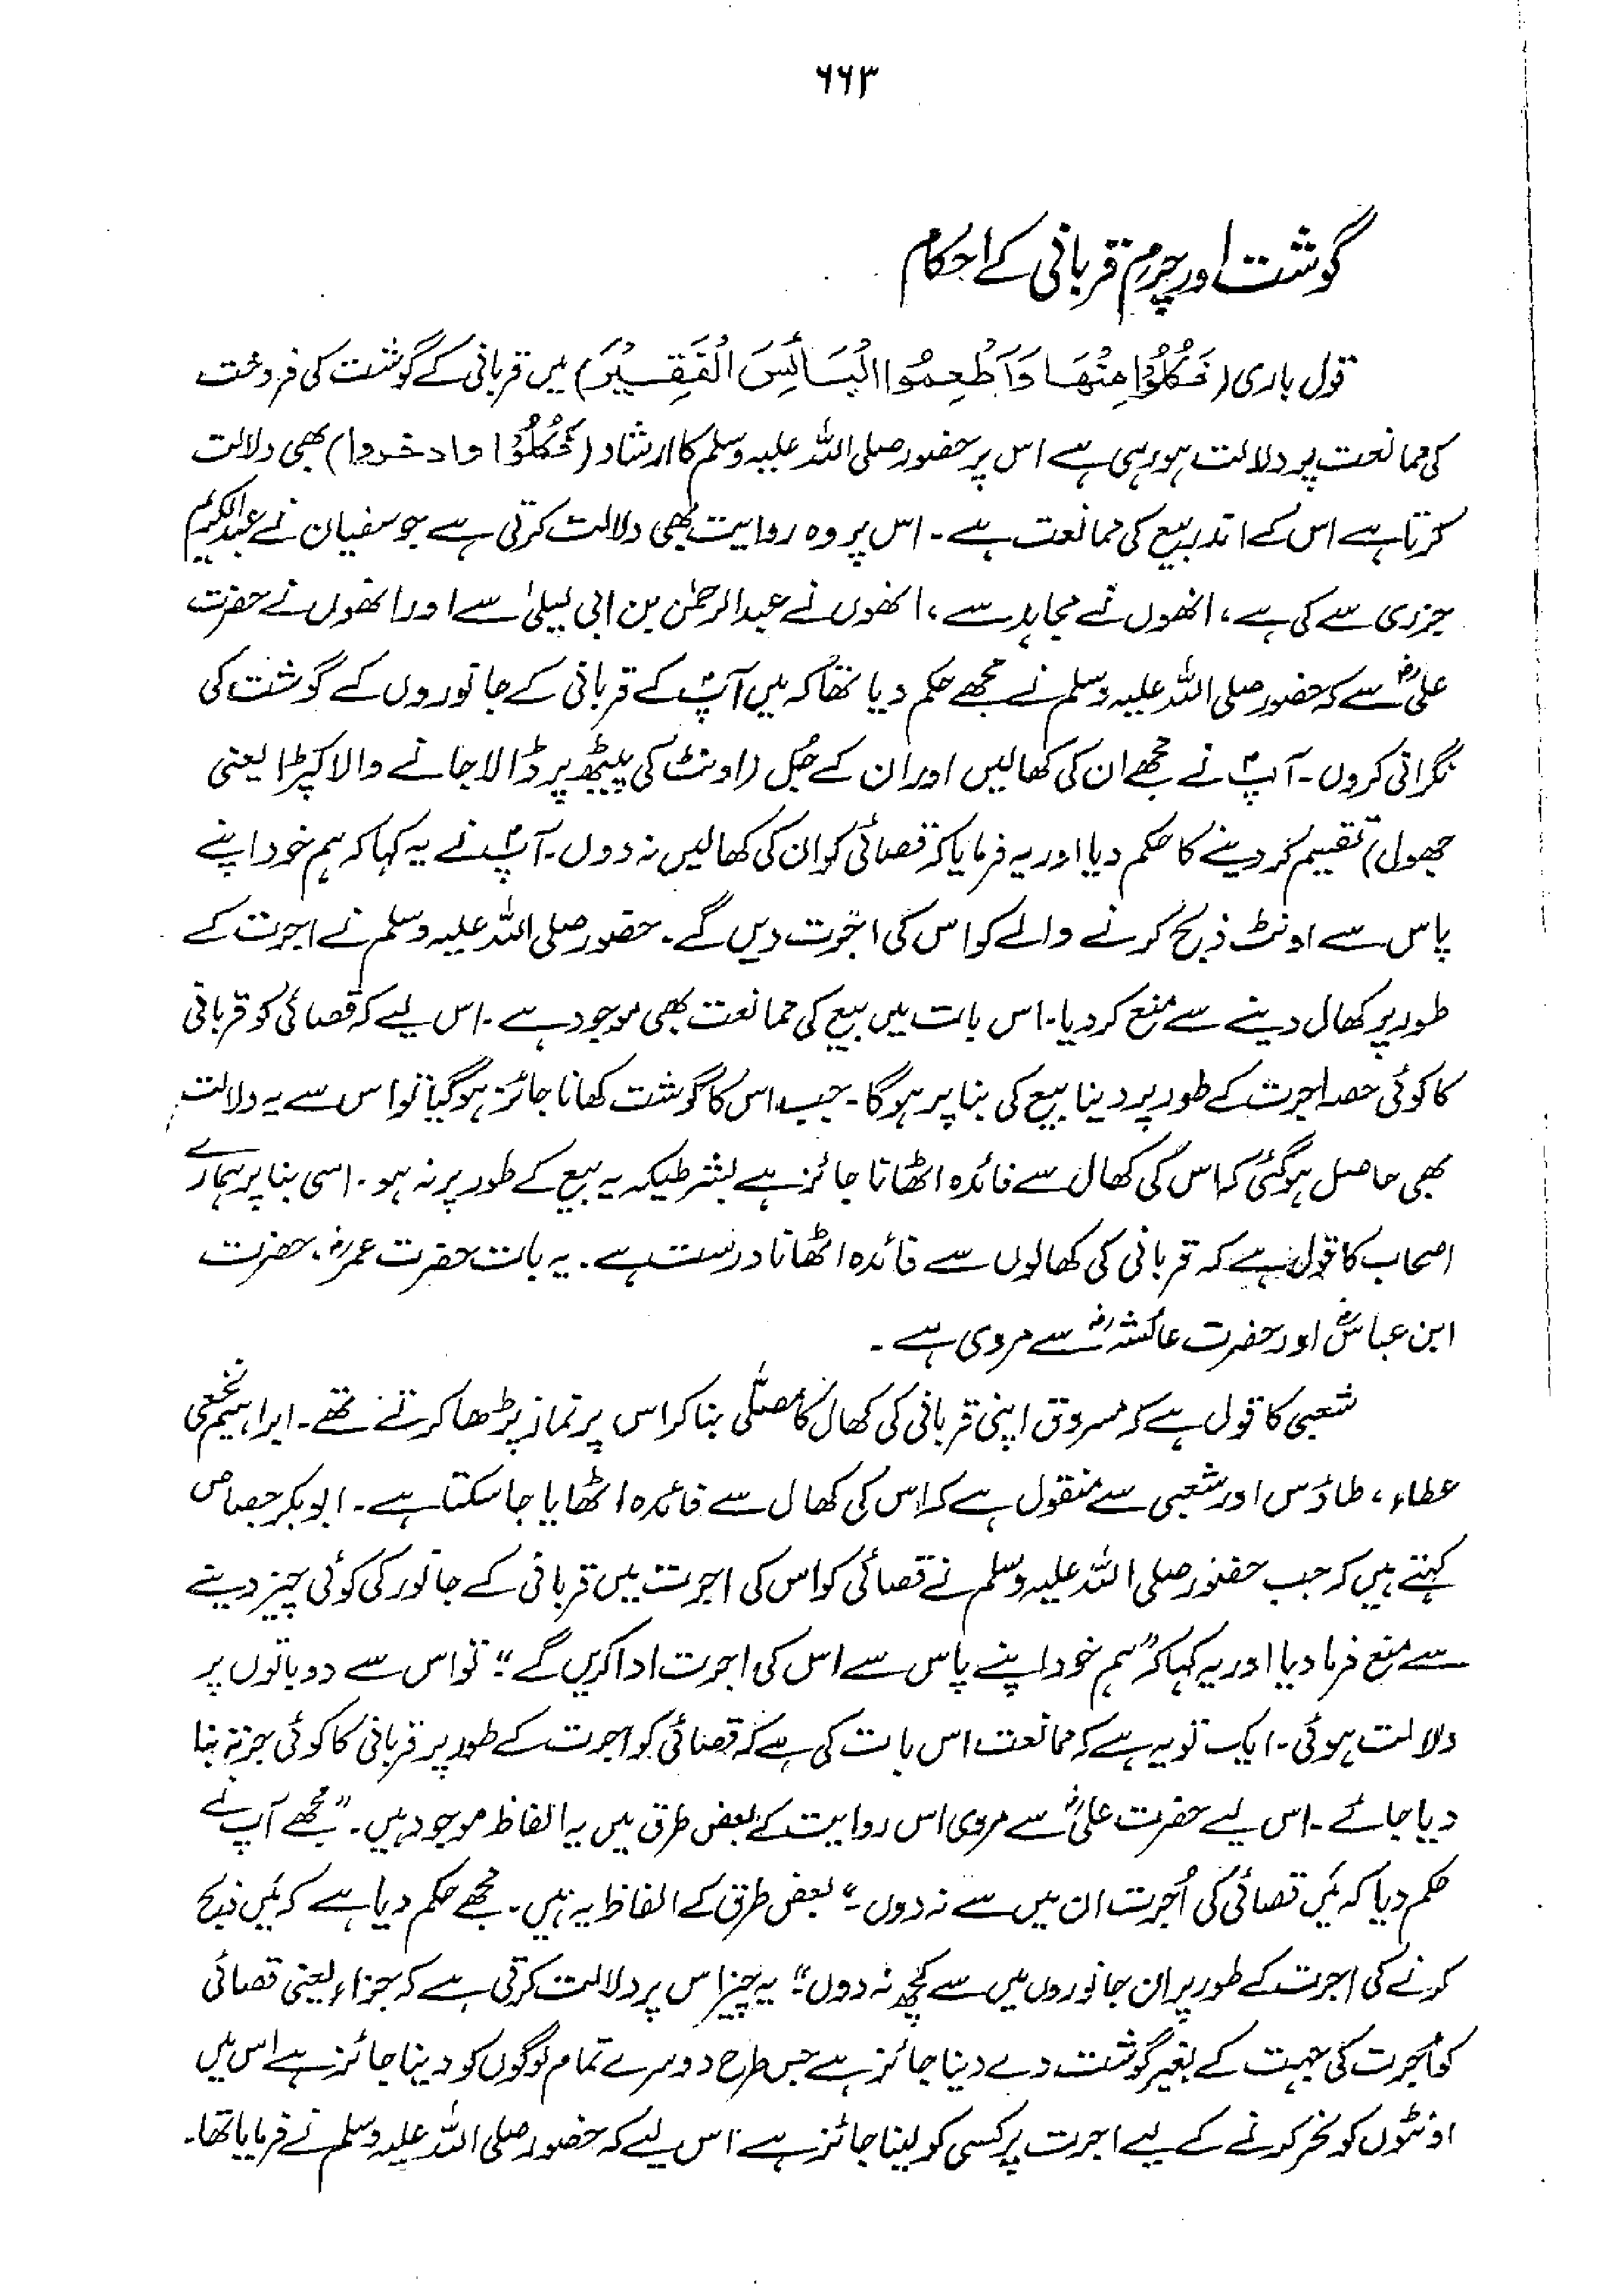 ۶۶۳
گوشت اور چرمِ قربانی کے احکام
قول باری (فَكُلُوْا مِنْهَا وَاَطْعِمُوا الْبَائِسَ الْفَقِيْرَ) میں قربانی کے گوشت کی فروخت
کی ممانعت پر دلالت ہو رہی ہے اس پر حضور صلی اللہ علیہ وسلم کا ارشاد (فَكُلُوْا وادخروا) بھی دلالت
کرتا ہے اس کے اندر بیع کی ممانعت ہے۔ اس پر وہ روایت بھی دلالت کرتی ہے جو سفیان نے عبدالکریم
جزری سے کی ہے، انھوں نے مجاہد سے، انھوں نے عبدالرحمٰن بن ابی لیلیٰ سے اور انھوں نے حضرت
علیؓ سے کہ حضور صلی اللہ علیہ وسلم نے مجھے حکم دیا تھا کہ میں آپؐ کے قربانی کے جانوروں کے گوشت کی
نگرانی کروں۔ آپؐ نے مجھے ان کی کھالیں اور ان کے جُل (اونٹ کی پیٹھ پر ڈالا جانے والا کپڑا یعنی
جھول) تقسیم کر دینے کا حکم دیا اور یہ فرمایا کہ قصائی کو ان کی کھالیں نہ دوں۔ آپؐ نے یہ کہا کہ ہم خود اپنے
پاس سے اونٹ ذبح کرنے والے کو اس کی اجرت دیں گے۔ حضور صلی اللہ علیہ وسلم نے اجرت کے
طور پر کھال دینے سے منع کر دیا۔ اس بات میں بیع کی ممانعت بھی موجود ہے۔ اس لیے کہ قصائی کو قربانی
کا کوئی حصہ اجرت کے طور پر دینا بیع کی بنا پر ہوگا۔ جب اس کا گوشت کھانا جائز ہو گیا تو اس سے یہ دلالت
بھی حاصل ہو گئی کہ اس کی کھال سے فائدہ اٹھانا جائز ہے بشرطیکہ یہ بیع کے طور پر نہ ہو۔ اسی بنا پر ہمارے
اصحاب کا قول ہے کہ قربانی کی کھالوں سے فائدہ اٹھانا درست ہے۔ یہ بات حضرت عمرؓ، حضرت
ابن عباسؓ اور حضرت عائشہؓ سے مروی ہے۔
شعبی کا قول ہے کہ مسروق اپنی قربانی کی کھال کا مصلّٰی بنا کر اس پر نماز پڑھا کرتے تھے۔ ابراہیم نخعی
عطاء، طاؤس اور شعبی سے منقول ہے کہ اس کی کھال سے فائدہ اٹھایا جا سکتا ہے۔ ابوبکر جصاص
کہتے ہیں کہ جب حضور صلی اللہ علیہ وسلم نے قصائی کو اس کی اجرت میں قربانی کے جانور کی کوئی چیز دینے
سے منع فرما دیا اور یہ کہا کہ "ہم خود اپنے پاس سے اس کی اجرت ادا کریں گے" تو اس سے دو باتوں پر
دلالت ہوئی۔ ایک تو یہ ہے کہ ممانعت اس بات کی ہے کہ قصائی کو اجرت کے طور پر قربانی کا کوئی جز نہ بنا
دیا جائے۔ اس لیے حضرت علیؓ سے مروی اس روایت کے بعض طرق میں یہ الفاظ موجود ہیں۔ "مجھے آپ نے
حکم دیا کہ میں قصائی کی اُجرت ان میں سے نہ دوں"۔ بعض طرق کے الفاظ یہ ہیں۔ مجھے حکم دیا ہے کہ میں ذبح
کرنے کی اجرت کے طور پر ان جانوروں میں سے کچھ نہ دوں"۔ یہ چیز اس پر دلالت کرتی ہے کہ جزاء یعنی قصائی
کو اُجرت کی جہت کے بغیر گوشت دے دینا جائز ہے جس طرح دوسرے تمام لوگوں کو دینا جائز ہے اس میں
اونٹوں کو نحر کرنے کے لیے اجرت پر کسی کو لینا جائز ہے اس لیے کہ حضور صلی اللہ علیہ وسلم نے فرمایا تھا۔